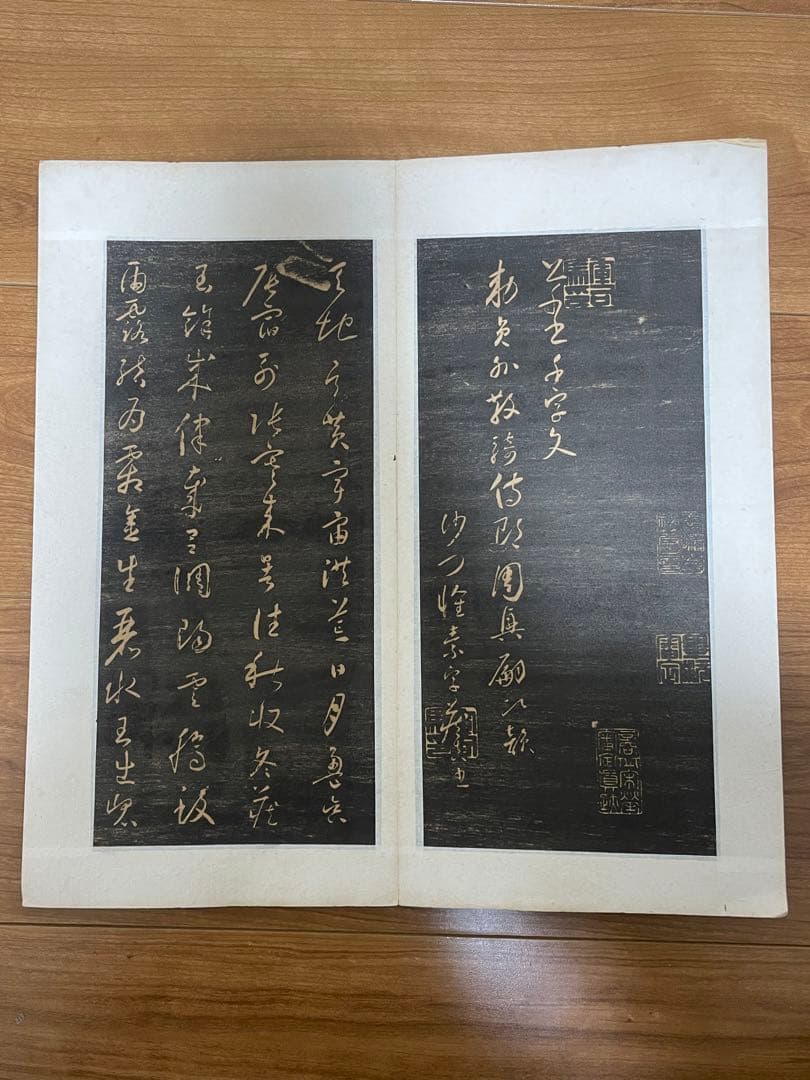 千字文
敕員外散騎侍郎周興嗣次韻
沙門懷素字藏真書
天地玄黃宇宙洪荒日月盈昃
辰宿列張寒來暑往秋收冬藏
閏餘成歲律呂調陽雲騰致
雨露結為霜金生麗水玉出崑